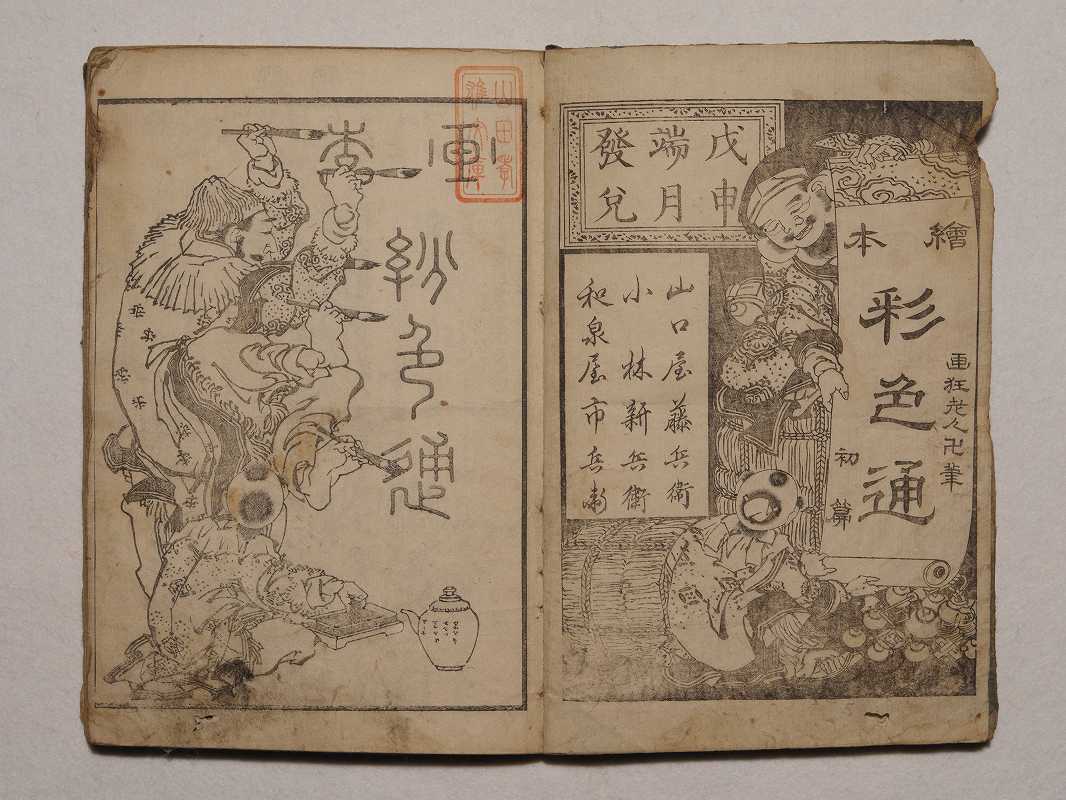 画狂老人卍筆
繪本
彩色通
初篇
戊申
端月
發兌
山口屋藤兵衛
小林新兵衛
和泉屋市兵衛
山田孝
雄文庫
画
色通